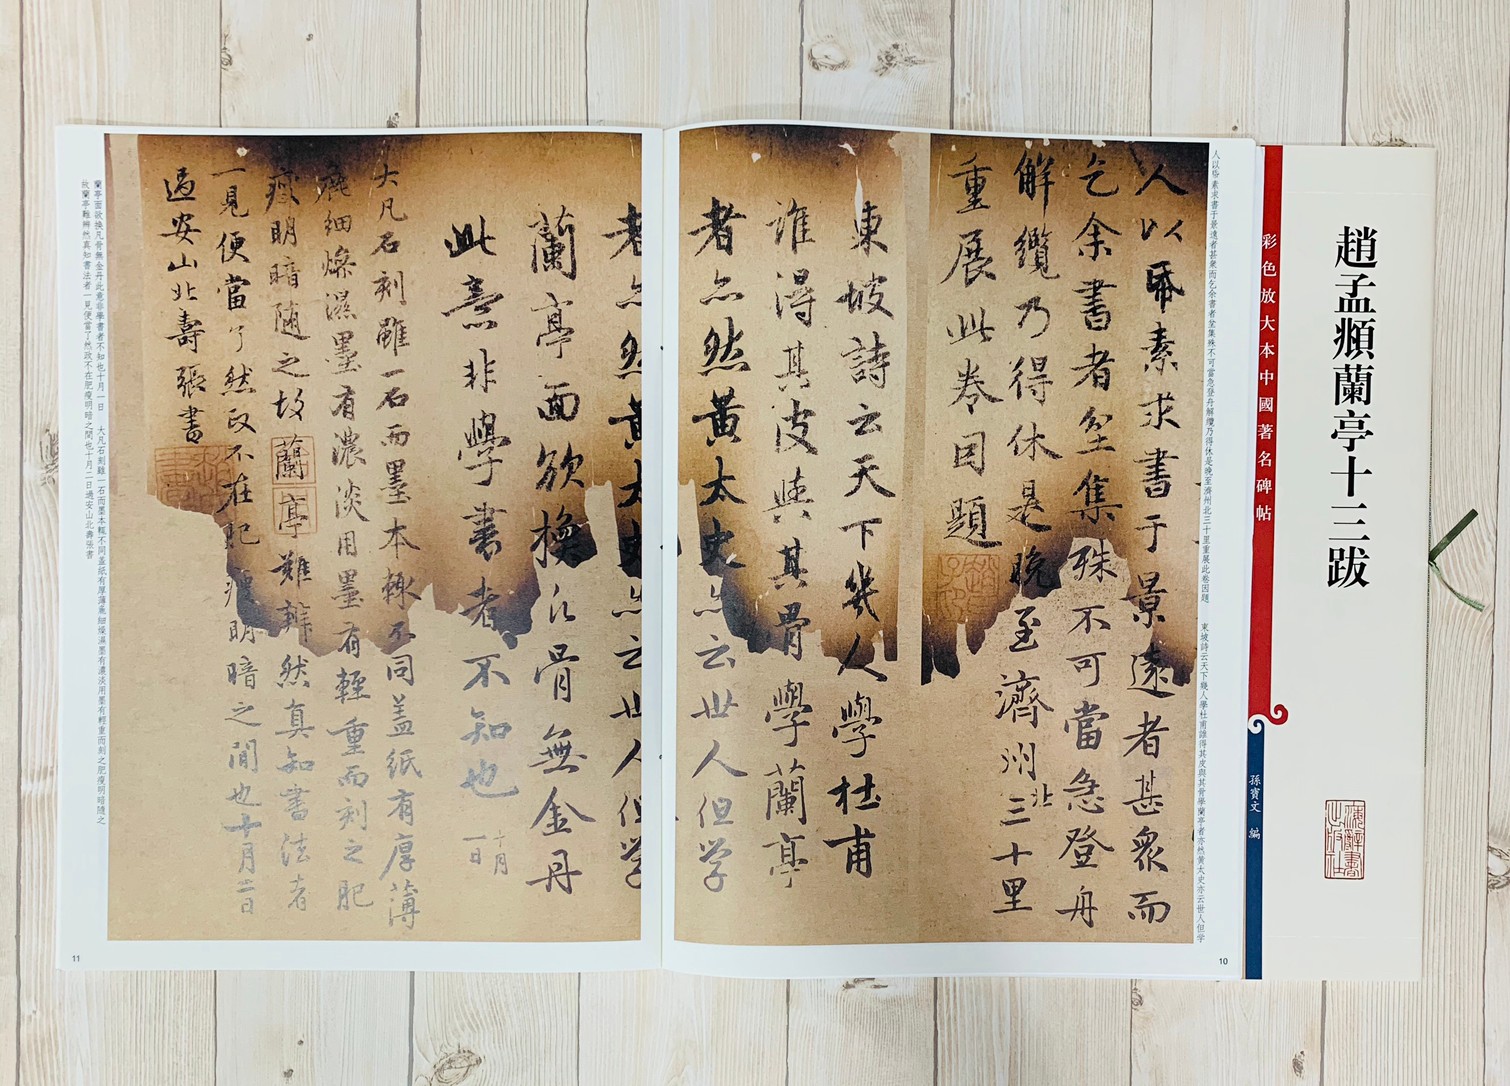 趙孟頫蘭亭十三跋
彩色放大本中國著名碑帖
孫寶文 編
海辭書出版社
人以帋素求書于景遠者甚衆而乞余書者坌集殊不可當急登舟解纜乃得休是晚至濟州北三十里重展此卷因題 東坡詩云天下幾人學杜甫誰得其皮與其骨學蘭亭者亦然黃太史亦云世人但学
人以帋素求書于景遠者甚衆而
乞余書者坌集殊不可當急登舟
解纜乃得休是晚至濟州北三十里
重展此卷因題
東坡詩云天下幾人學杜甫
誰得其皮與其骨學蘭亭
者亦然黃太史亦云世人但学
10
者亦然黃太史亦云世人但學
蘭亭面欲換凡骨無金丹
此意非學書者不知也十月一日
大凡石刻雖一石而墨本輙不同盖紙有厚薄
麁細燥濕墨有濃淡用墨有輕重而刻之肥
瘦明暗随之故蘭亭難辨然真知書法者
一見便當了然政不在肥瘦明暗之間也十月二日
過安山北壽張書
蘭亭面欲換凡骨無金丹此意非學書者不知也十月一日 大凡石刻雖一石而墨本輙不同盖紙有厚薄麁細燥濕墨有濃淡用墨有輕重而刻之肥瘦明暗随之
故蘭亭難辨然真知書法者一見便當了然政不在肥瘦明暗之間也十月二日過安山北壽張書
11